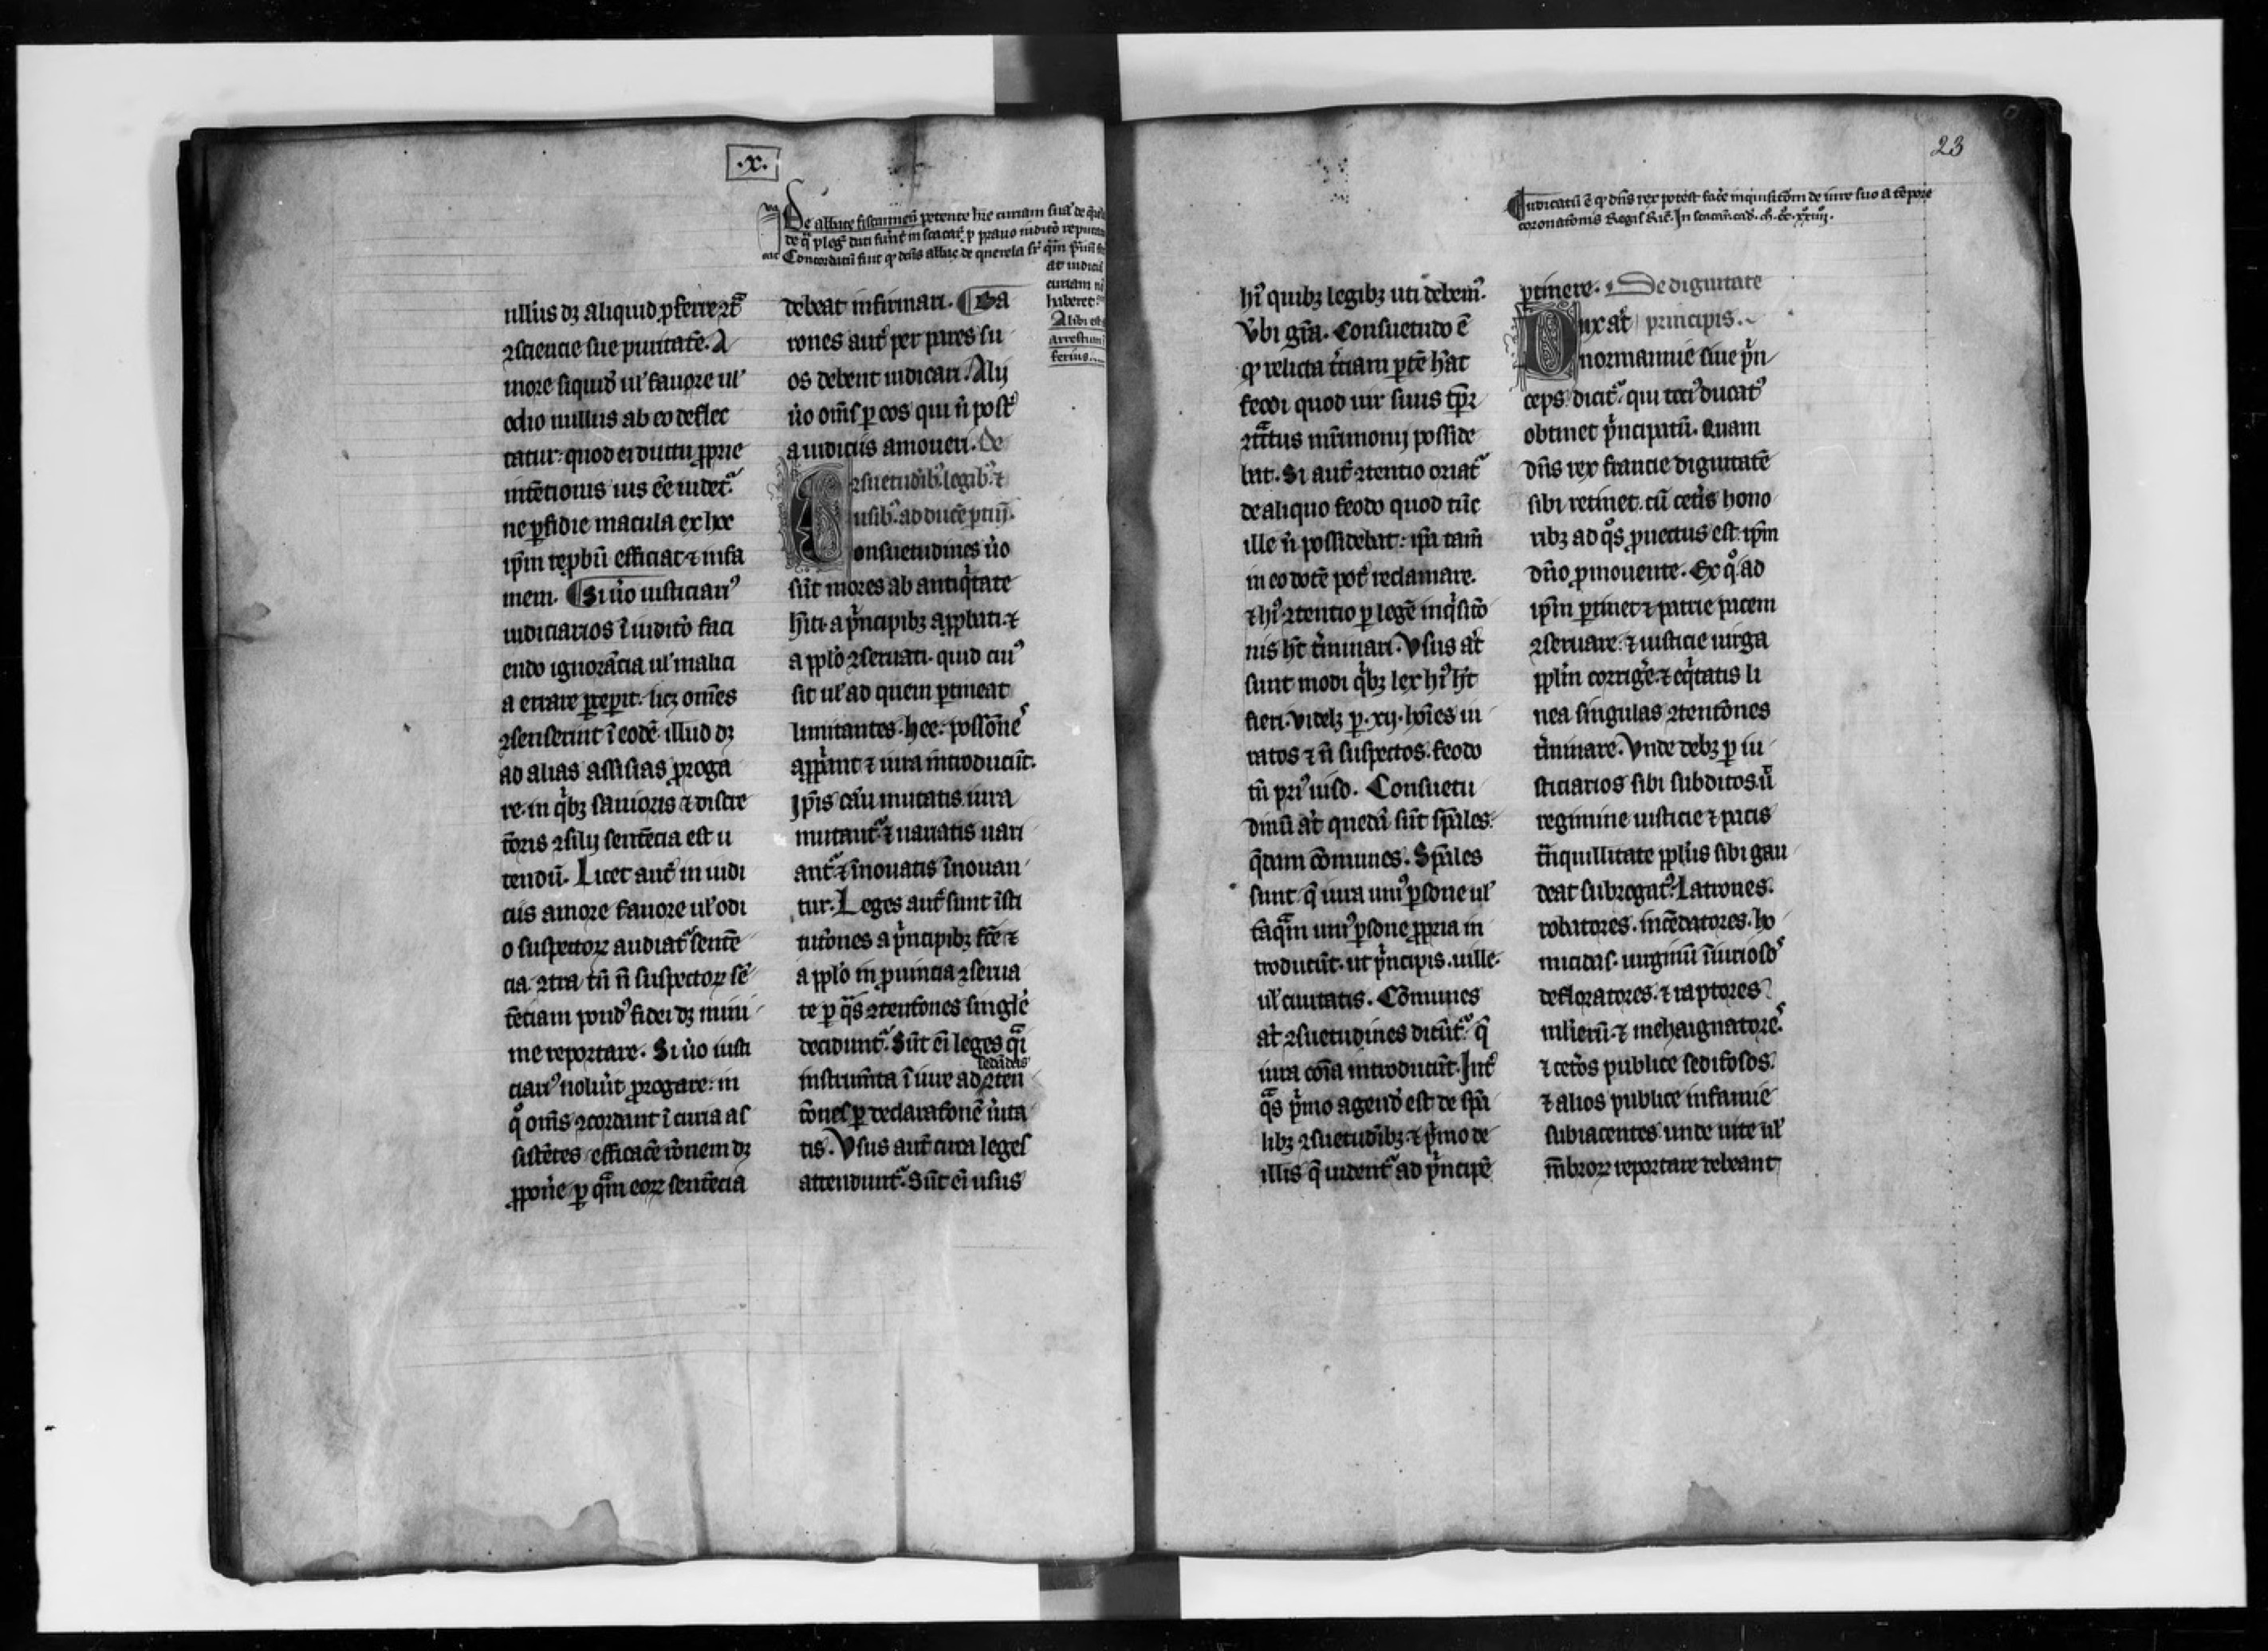 .x.
De abbate fiscannen̄ petente h̄re curiam suā de q̄rela
de q̄ pleg̕ dati fuer̄t in scacar̕ p prauo iudic̕o reputata
Concordatū fuit qͥ dc̄us abbas de querela
at iudiciū
curiam n̄
haberet
Alibi est
arrestum
ferius
ullius dꝫ aliquid p̄ferre ꝯtͣ
ꝯsciencie sue puritatē. A
more siquid̕ ul̕ fauore ul̕
odio nullus ab eo deflec
tatur: quod ei ductu ꝓprie
intētionis ius eē uidet͛.
ne ꝑfidie macula ex hoc
ip̄m rep̱bū efficiat ⁊ infa
mem. ¶ Si u̕o iusticiari᷒
iudiciarios ī iudic̕o faci
endo ignorācia ul̕ malici
a errare ꝑceperit: licꝫ om̄es
ꝯsenserint ī eodē illud dꝫ
ad alias assisias ꝓroga
re. in qͥbꝫ sanioris ⁊ discre
cōris ꝯsilij sentēcia est u
tendū. Licet aut̕ in iudi
ciis amore fauore ul̕ odi
o suspectoꝝ audiat͛ sentē
cia. ꝯtra tn̄ n̄ suspectoꝝ sē
tēciam pond᷒ fidei dꝫ mini
me reportare. Si u̕o iusti
ciari᷒ nolu̕it ꝓrogare: in
qͦ om̄s ꝯcordant ī curia as
sistētes efficacē rōnem dꝫ
ꝓpon̕e ꝑ qͣm eoꝝ sentēcia
debeat infirmari. ¶ Ba
rones aut̕ per pares su
os debent iudicari. Alij
u̕o om̄s ꝑ eos qui n̄ poss̄t
a iudiciis amoueri. De
ꝯsuetudīb᷒. legib᷒. ⁊
usib᷒. ad ducē ꝑtin̄.
Consuetudines u̕o
sūt mores ab antiqͥtate
h̄iti. a pͥncipibꝫ apꝓbati. ⁊
a pplo̕ ꝯseruati. quid cui᷒
sit ul̕ ad quem ꝑtineat
limitantes. hec possōnes
appͥmt ⁊ iura introducūt.
ip̄is cāū mutatis iura
mutant͛ ⁊ uariatis uari
ant͛ ⁊ īnouatis īnouan
tur. Leges aut̕ sunt īsti
tutōnes a pͥncipibꝫ fc̄e ⁊
a pplo̕ in ꝓuincia ꝯserua
te ꝑ qͣs ꝯtentōnes singl̕e
decidunt͛. Sūt ei̕ leges qͣi
sedādas
instrum̄ta ī iure ad ꝯten
cōnes ꝑ declaratōnē u̕ita
tis. Vsus aut̕ circa leges
attendunt͛. Sūt ei̕ usus
23
¶ Iudicatū ē qͥ dn̄s rex potest fac̕e inquisitōm de iure suo a tēpore
coronatōnis Regis Ric̕. In scacar̕ cad̕. m̊. cc̊. xxiiij̊.
hi᷒ quibꝫ legibꝫ uti debem᷒.
V̕bi gr̄a. Consuetudo ē
qͥ relicta t̕ciam ꝑtē h̄at
feodi quod uir suus tp̄r
ꝯtͣctus mr̄imonij posside
bat. Si aut̕ ꝯtentio oriat͛
de aliquo feodo quod tūc
ille n̄ possidebat: ip̄a tam̄
in eo dotē pot̕ reclamare.
⁊ hi᷒ ꝯtentio ꝑ legē inqͥsicō
nis h̄t t̕minari. Vsus at̕
sunt modi qͥbꝫ lex hi᷒ h̄t
fieri. videlꝫ ꝑ .xij. ho̅ies iu
ratos ⁊ n̄ suspectos. feodo
tn̄ pri᷒ uiso. Consuetu
dinū at̕ quedā sūt spāles:
qͤdam cōmunes. Spāles
sunt q̄ iura uni᷒ ꝑsone ul̕
taqͣm uni᷒ ꝑsone ꝓpria in
troducūt. ut pͥncipis. uille.
ul̕ ciuitatis. Cōmunes
at̕ ꝯsuetudines dicūt͛ q̄
iura cōia introducūt. Int̕
qͣs pͥmo agend̕ est de spā
libꝫ ꝯsuetud̄ibꝫ. ⁊ pͥmo de
illis q̄ uident͛ ad pͥncipē
ꝑtinere. De dignitate
principis.
Dux at̕
normannie siue pͥn
ceps dicit͛. qui toci᷒ ducat᷒
obtinet pͥncipatū. Quam
dn̄s rex francie dignitatē
sibi retinet. cū cet̕is hono
ribꝫ ad qͦs ꝓuectus est. ip̄m
dn̄o ꝓmouente. Ex qͦ ad
ip̄m ꝑtinet ⁊ patrie pacem
ꝯseruare. ⁊ iusticie uirga
pplm̄ corrig̕e. ⁊ eqͥtatis li
nea singulas ꝯtentōnes
t̕minare. Vnde debꝫ ꝑ iu
sticiarios sibi subditos. u̕
regimine iusticie ⁊ pacis
tͣnquillitate ppl̕us sibi gau
deat subrogat᷒. Latrones.
robatores. incēdatores. ho
micidas. uirginū īiuriosos
defloratores. ⁊ raptores
mlierū. ⁊ mehaignatores.
⁊ cet̕os publice seditosos.
⁊ alios publice infamie
subiacentes. unde uite ul̕
m̄broꝝ reportare debeant